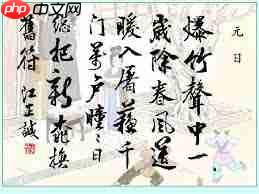 php中文网
元日
爆竹聲中一
歲除春風送
暖入屠蘇千
門萬户曈々日
總把新桃換
舊符 江正誠